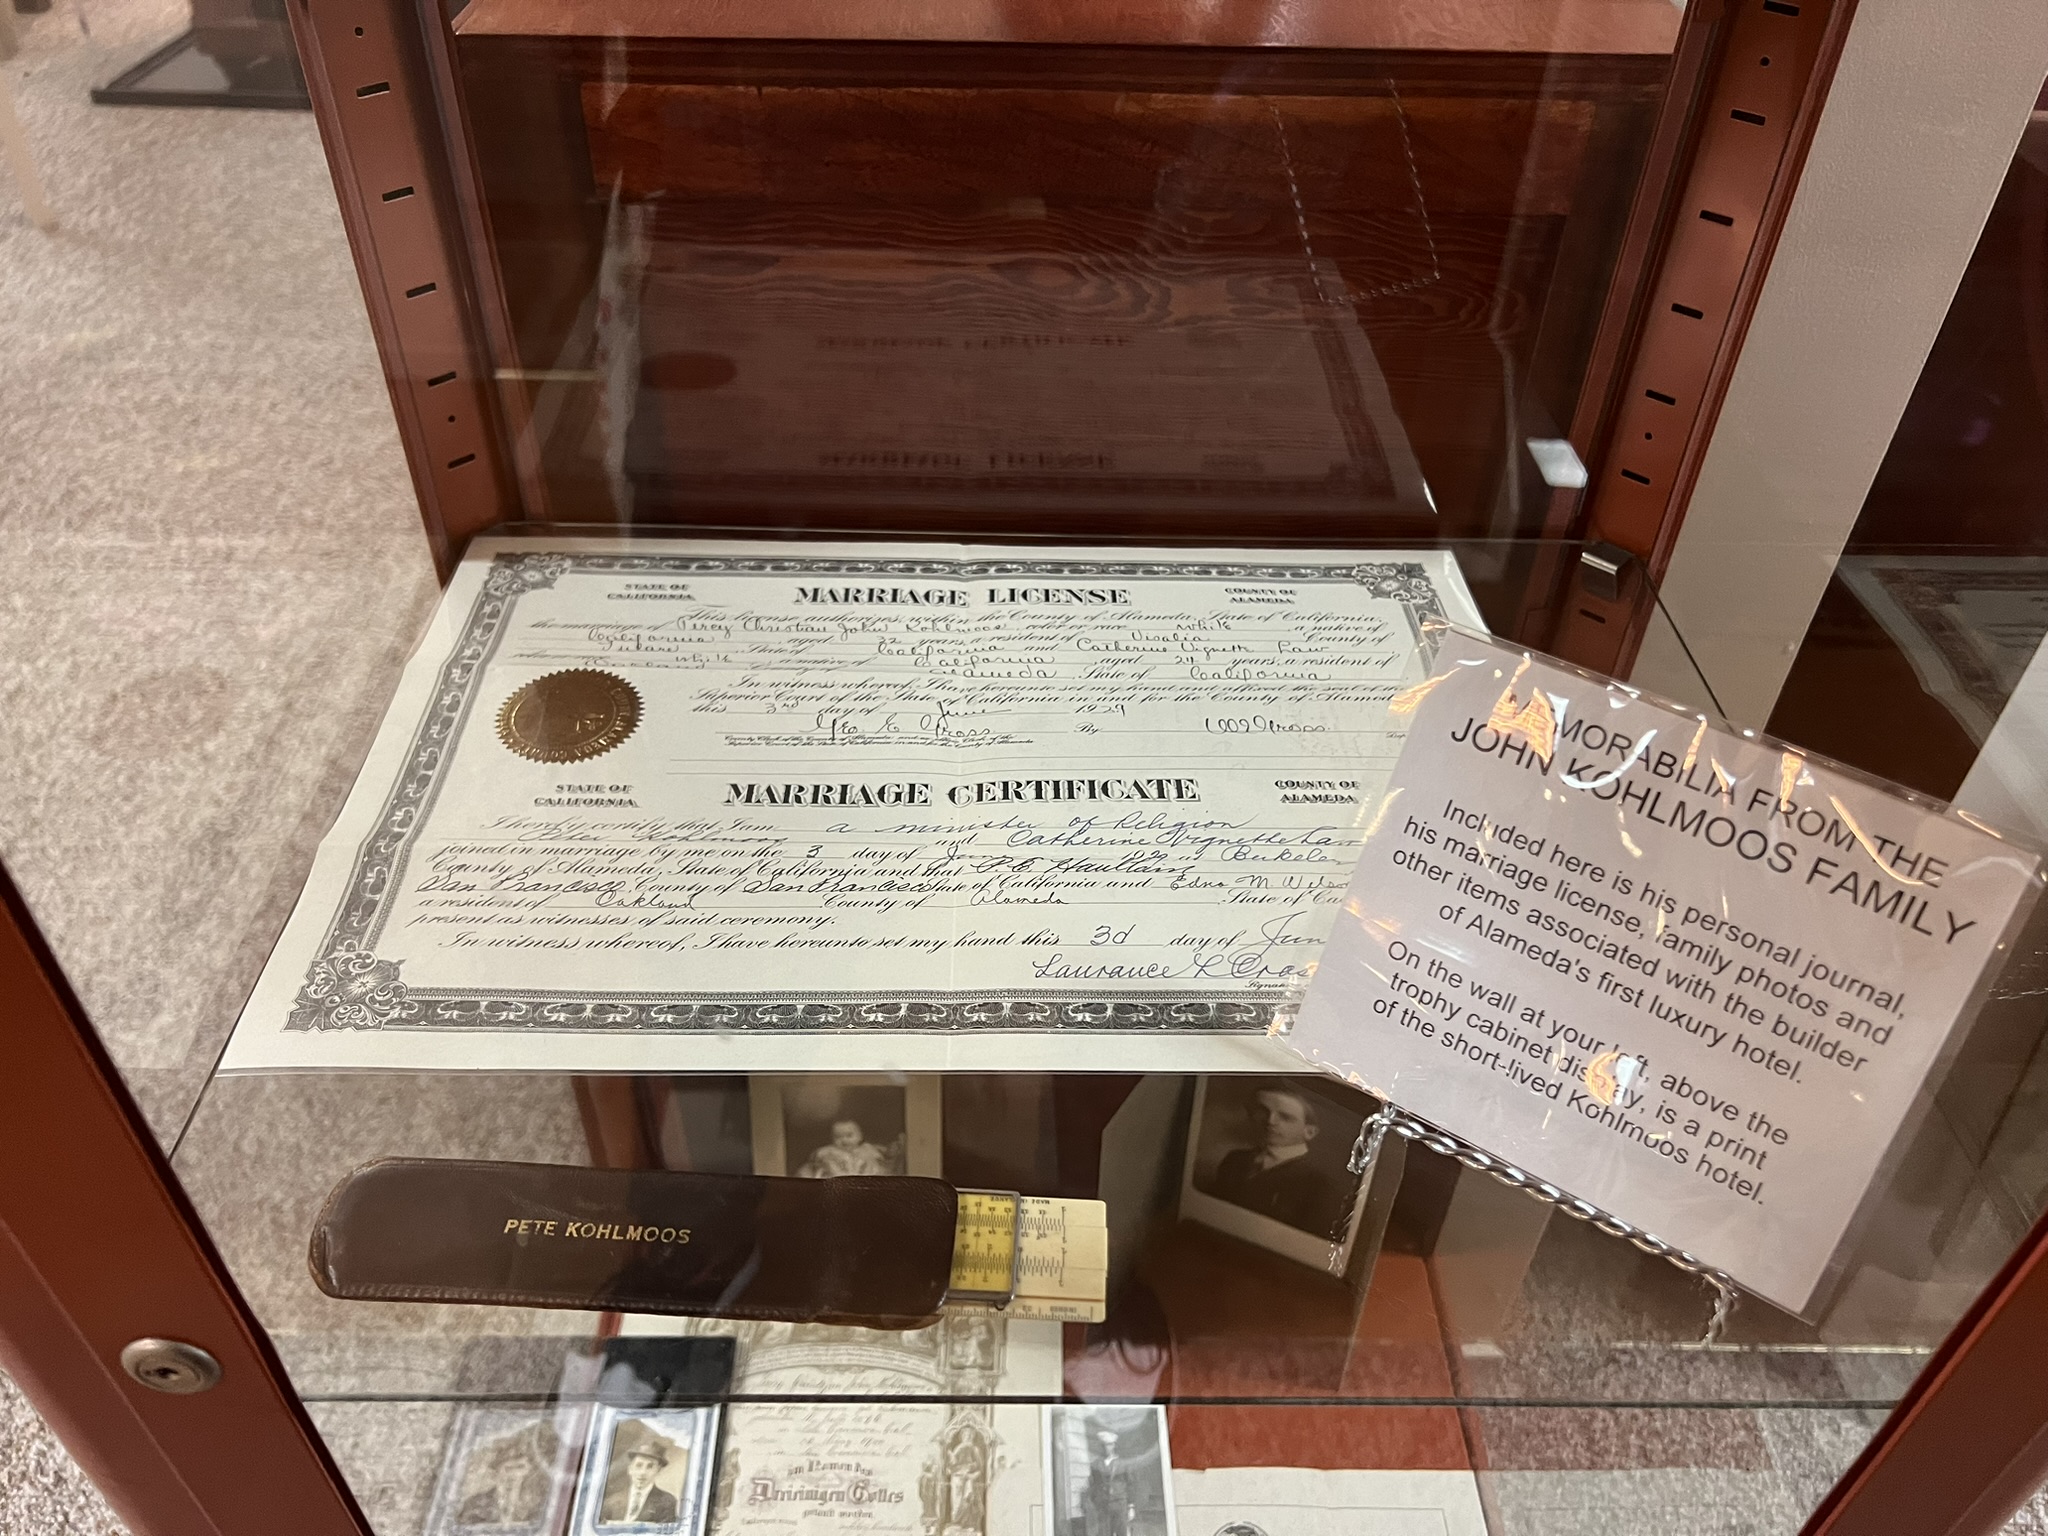 STATE OF
CALIFORNIA
MARRIAGE LICENSE
COUNTY OF
ALAMEDA
This license authorizes, within the County of Alameda, State of California,
the marriage of Percy Christian John Kohlmoos color or race white a native of
California aged 32 years, a resident of Visalia County of
Tulare State of California and Catherine Vignette Law
white a native of California aged 24 years, a resident of
Alameda State of California
In witness whereof, I have hereunto set my hand and affixed the seal of the
Superior Court of the State of California in and for the County of Alameda
this 3rd day of June 1929
Geo. E. Gross By
STATE OF
CALIFORNIA
MARRIAGE CERTIFICATE
COUNTY OF
ALAMEDA
I hereby certify that I am a minister of Religion
Kohlmoos and Catherine Vignette Law
joined in marriage by me on the 3 day of
County of Alameda, State of California and that P. E.
San Francisco, County of San Francisco State of California and Edna M.
a resident of Oakland County of Alameda State of
present as witnesses of said ceremony.
In witness whereof, I have hereunto set my hand this 3d day of Jun
Laurance L Cros
MEMORABILIA FROM THE
JOHN KOHLMOOS FAMILY
Included here is his personal journal,
his marriage license, family photos and
other items associated with the builder
of Alameda's first luxury hotel.
On the wall at your left, above the
trophy cabinet display, is a print
of the short-lived Kohlmoos hotel.
PETE KOHLMOOS